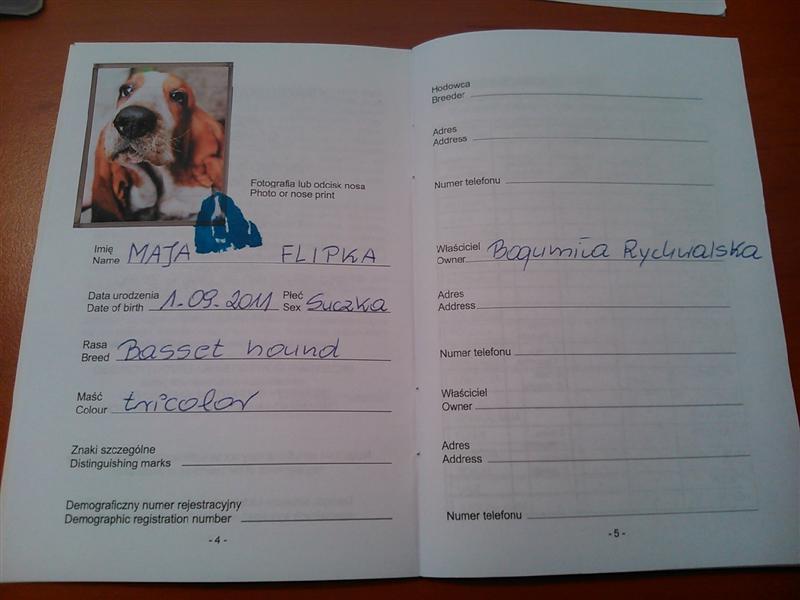 Fotografia lub odcisk nosa
Photo or nose print
Imię
Name MAJA FLIPKA
Data urodzenia Płeć
Date of birth 1.09.2011 Sex Suczka
Rasa
Breed Basset hound
Maść
Colour tricolor
Znaki szczególne
Distinguishing marks
Demograficzny numer rejestracyjny
Demographic registration number
- 4 -
Hodowca
Breeder
Adres
Address
Numer telefonu
Właściciel
Owner Bogumiła Rychwalska
Adres
Address
Numer telefonu
Właściciel
Owner
Adres
Address
Numer telefonu
- 5 -